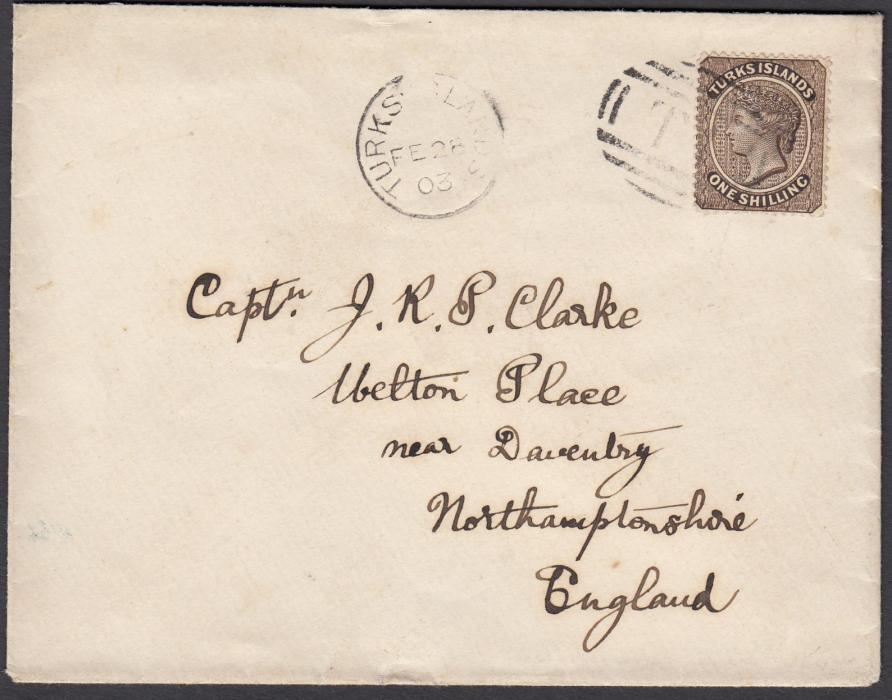 TURKS ISLANDS
FE 28
03
T
TURKS ISLANDS
ONE SHILLING
Captn. J. R. P. Clarke
Welton Place
near Daventry
Northamptonshire
England